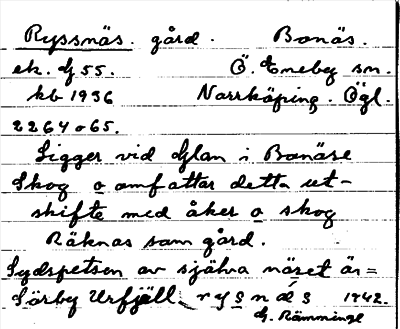 Ryssnäs. gård. Bonäs.
ek. G 55. Ö. Eneby sn.
kb 1936 Norrköping. Ögl.
2264 o 65.
Ligger vid Glan i Bonäse
Skog o omfattar detta ut-
skifte med åker o skog
Räknas som gård.
Sydspetsen av själva näset är=
Sörby Urfjäll rysnäs 1942.
G. Rämminge